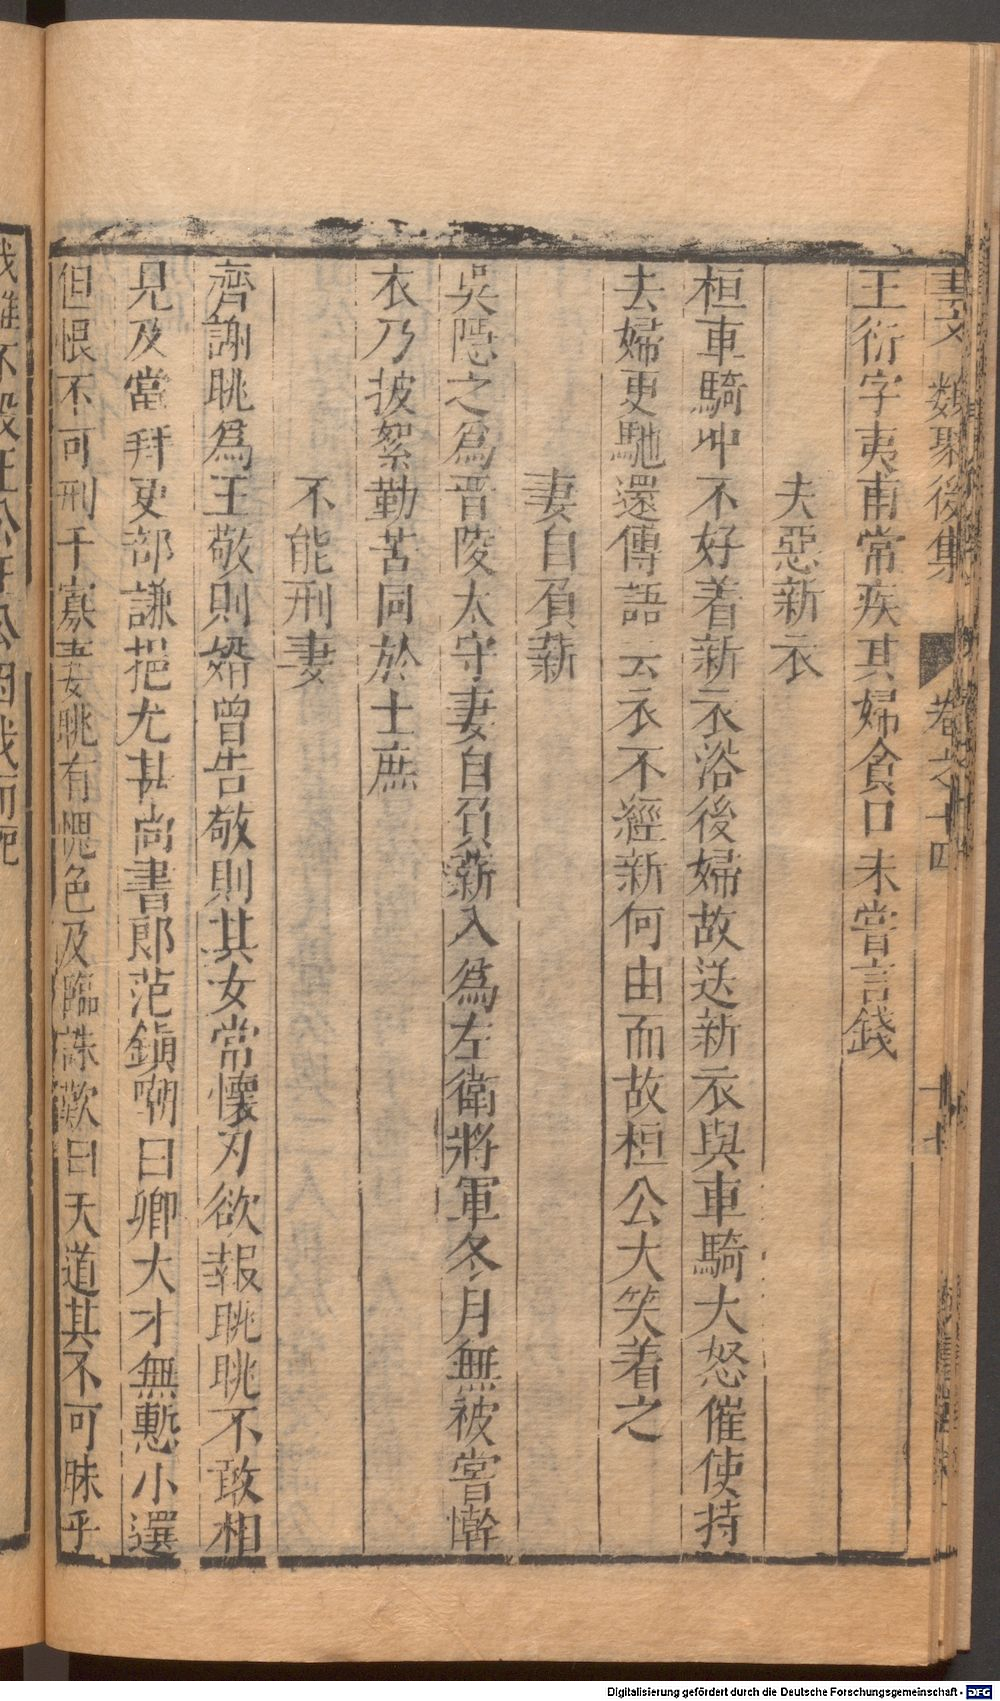 事文類聚後集 卷之十四 十七
王衍字夷甫常疾其婦貪口未嘗言錢
夫惡新衣
桓車騎冲不好着新衣浴後婦故送新衣與車騎大怒催使持
去婦更馳還傳語云衣不經新何由而故桓公大笑着之
妻自負薪
吳隱之爲晋陵太守妻自負薪入爲左衛將軍冬月無被嘗澣
衣乃披絮勤苦同於士庶
不能刑妻
齊謝眺爲王敬則婿曾告敬則其女常懷刃欲報眺眺不敢相
見及當拜吏部謙挹尤甚尚書郎范鎮嘲曰卿大才無慙小選
但恨不可刑于寡妻眺有愧色及臨誅歎曰天道其不可昧乎
我雖不殺王公王公因我而死
Digitalisierung gefördert durch die Deutsche Forschungsgemeinschaft - DFG